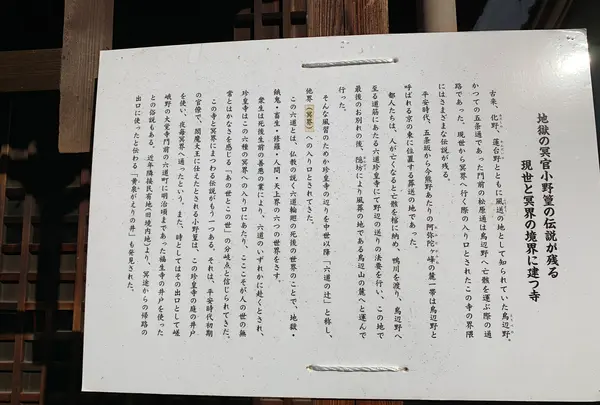 地獄の冥官小野篁の伝説が残る
現世と冥界の境界に建つ寺
古来、化野、蓮台野とともに風送の地として知られていた鳥辺野。
かつての五条通であった門前の松原通は鳥辺野へ亡骸を運ぶ際の通
路であった。現世から冥界へ行く際の入り口とされたこの寺の界隈
にはさまざまな伝説が残る。
平安時代、五条坂から今熊野あたりの阿弥陀ヶ峰の麓一帯は鳥辺野と
呼ばれる京の東に位置する葬送の地であった。
都人たちは、人が亡くなると亡骸を棺に納め、鴨川を渡り、鳥辺野へ
至る道筋にあたる六道珍皇寺にて野辺の送りの法要を行い、この地で
最後のお別れの後、隠坊により風葬の地である鳥辺山の麓へと運んで
行った。
そんな風習のためか珍皇寺の辺りを中世以降「六道の辻」と称し、
他界（冥界）への入り口とされてきた。
この六道とは、仏教の説く六道輪廻の死後の世界のことで、地獄・
餓鬼・畜生・修羅・人間・天上界の六つの世界をさす。
衆生は死後生前の善悪の業により、六道のいずれかに赴くとされ、
珍皇寺はこの六種の冥界への入り口にあたり、ここそが人の世の無
常とはかなさを感じる「あの世とこの世」の分岐点と信じられてきた。
この寺と冥界にまつわる伝説がもう一つある。それは、平安時代初期
の官僚で、閻魔大王に仕えたとされる小野篁は、この珍皇寺の庭の井戸
を使い、夜毎冥界へ通ったという。また、時としてはその出口として嵯
峨野の大覚寺門前の六道町に明治頃まであった福生寺の井戸を使った
との俗説もある。近年隣接民有地(旧境内地)より、冥途からの帰路の
出口に使ったと伝わる「黄泉がえりの井」も発見された。